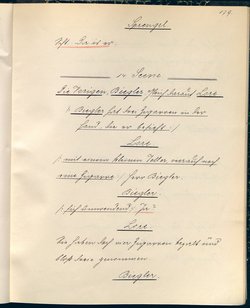 199.
Sprengel
Pst! Da ist er.
14. Scene
Die Vorigen, Biegler, Musketier auf Lore
/: Biegler hat drei Zigarren in der
Hand, die er besieht :/
Lore
/: mit einem kleinen Teller worauf noch
eine Zigarre :/ Herr Biegler.
Biegler.
/: sich umwendend :/ Ja?
Lore.
Sie haben doch vier Zigarren bezahlt und
bloß drei genommen.
Biegler